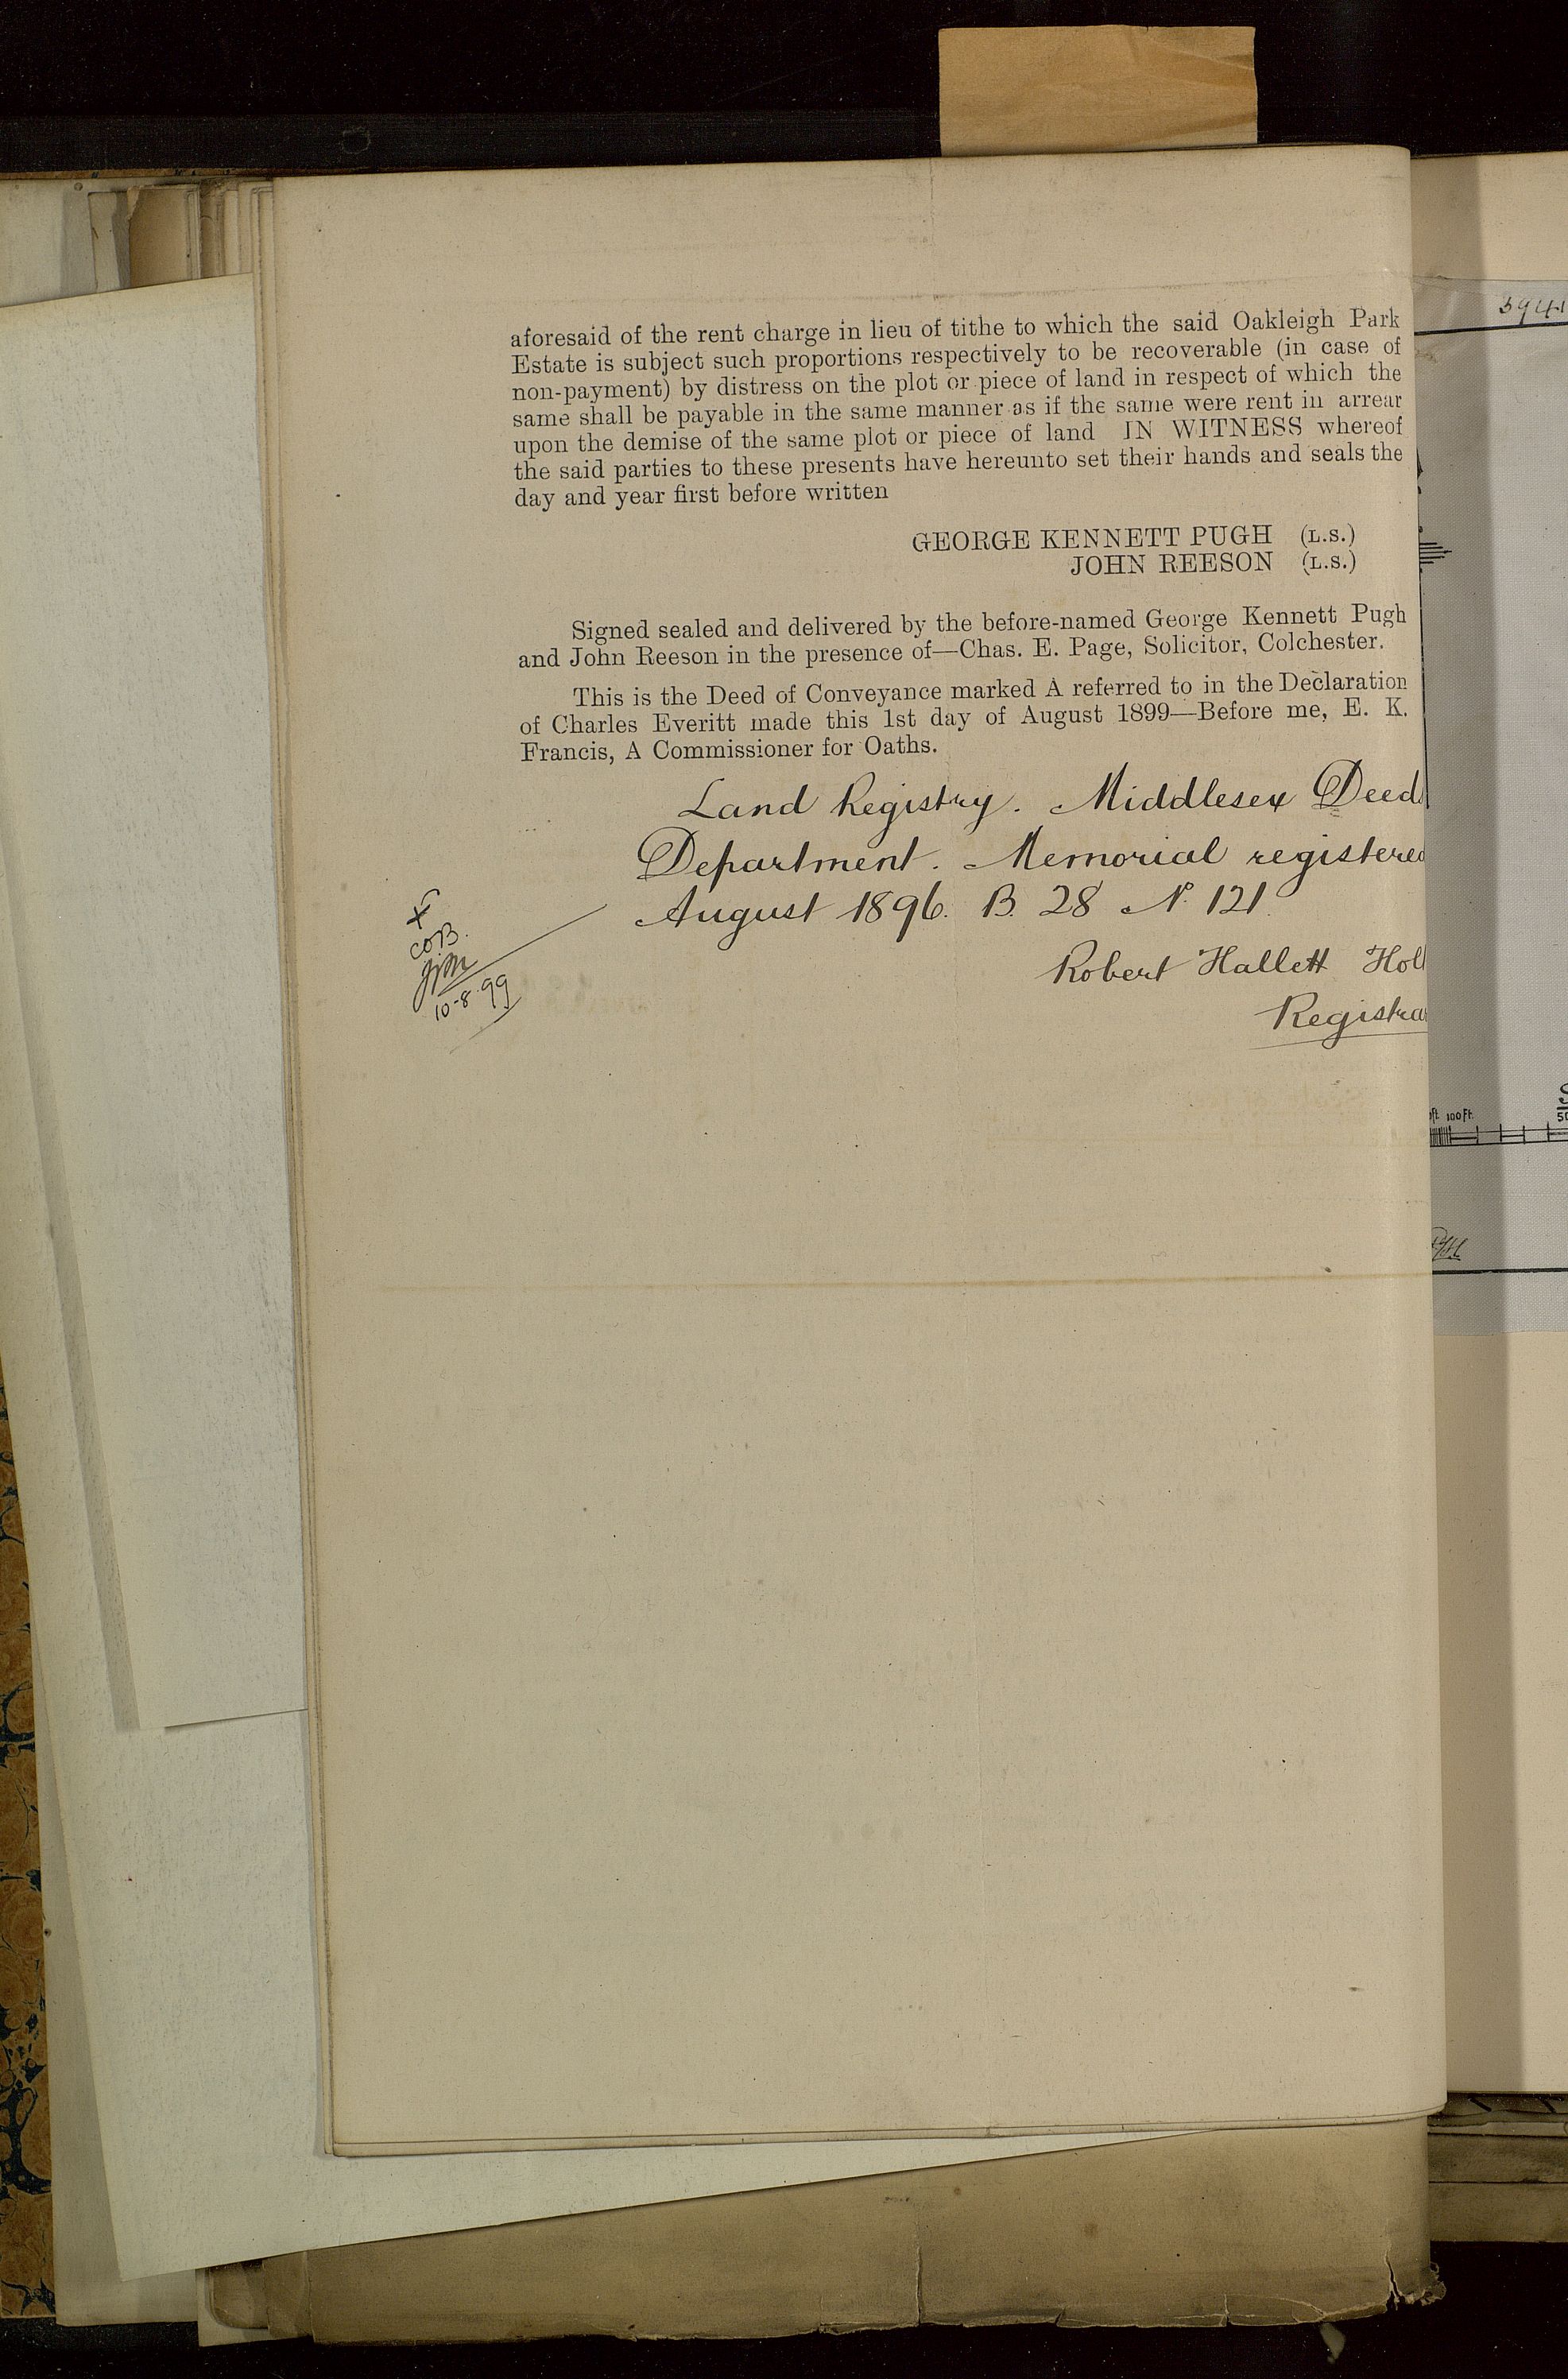 aforesaid of the rent charge in lieu of tithe to which the said Oakleigh Park
Estate is subject such proportions respectively to be recoverable (in case of
non-payment) by distress on the plot or piece of land in respect of which the
same shall be payable in the same manner as if the same were rent in arrear
upon the demise of the same plot or piece of land IN WITNESS whereof
the said parties to these presents have hereunto set their hands and seals the
day and year first before written
GEORGE KENNETT PUGH (L.S.)
JOHN REESON (L.S.)
Signed sealed and delivered by the before-named George Kennett Pugh
and John Reeson in the presence of—Chas. E. Page, Solicitor, Colchester.
This is the Deed of Conveyance marked A referred to in the Declaration
of Charles Everitt made this 1st day of August 1899—Before me, E. K.
Francis, A Commissioner for Oaths.
Land Registry. Middlesex Deed
Department. Memorial registered
August 1896. B. 28 No. 121
Robert Hallett Hol
Registra
10-8-99
3941
100 ft.